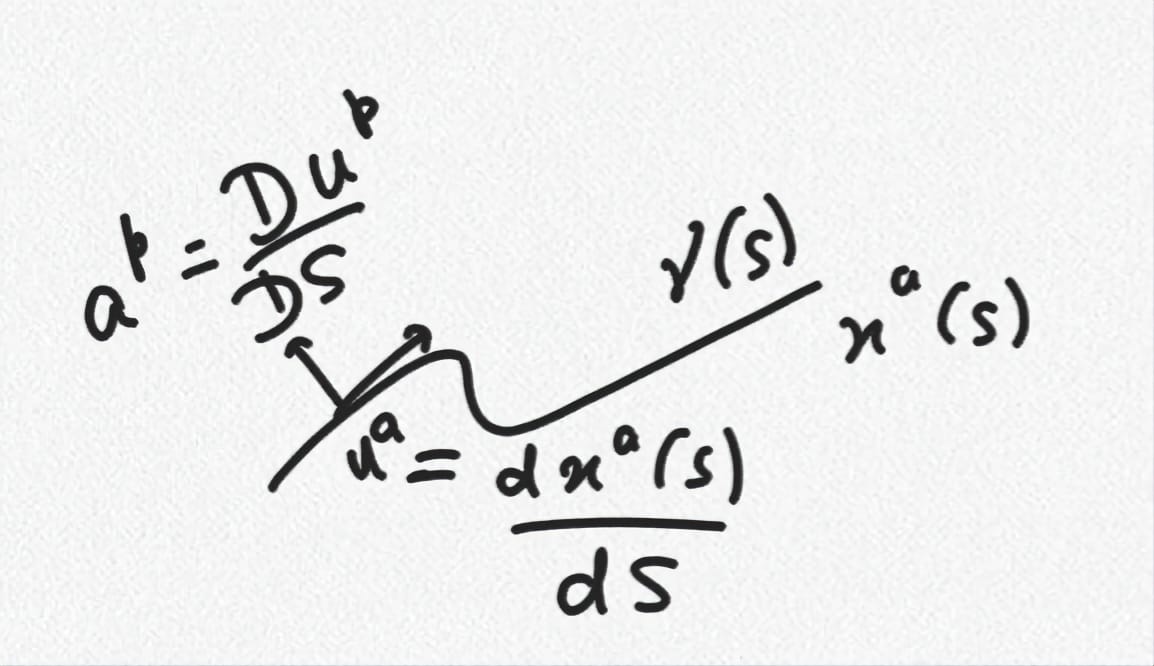 a^b = Du^b / DS
γ(s)
x^a(s)
u^a = dx^a(s) / ds